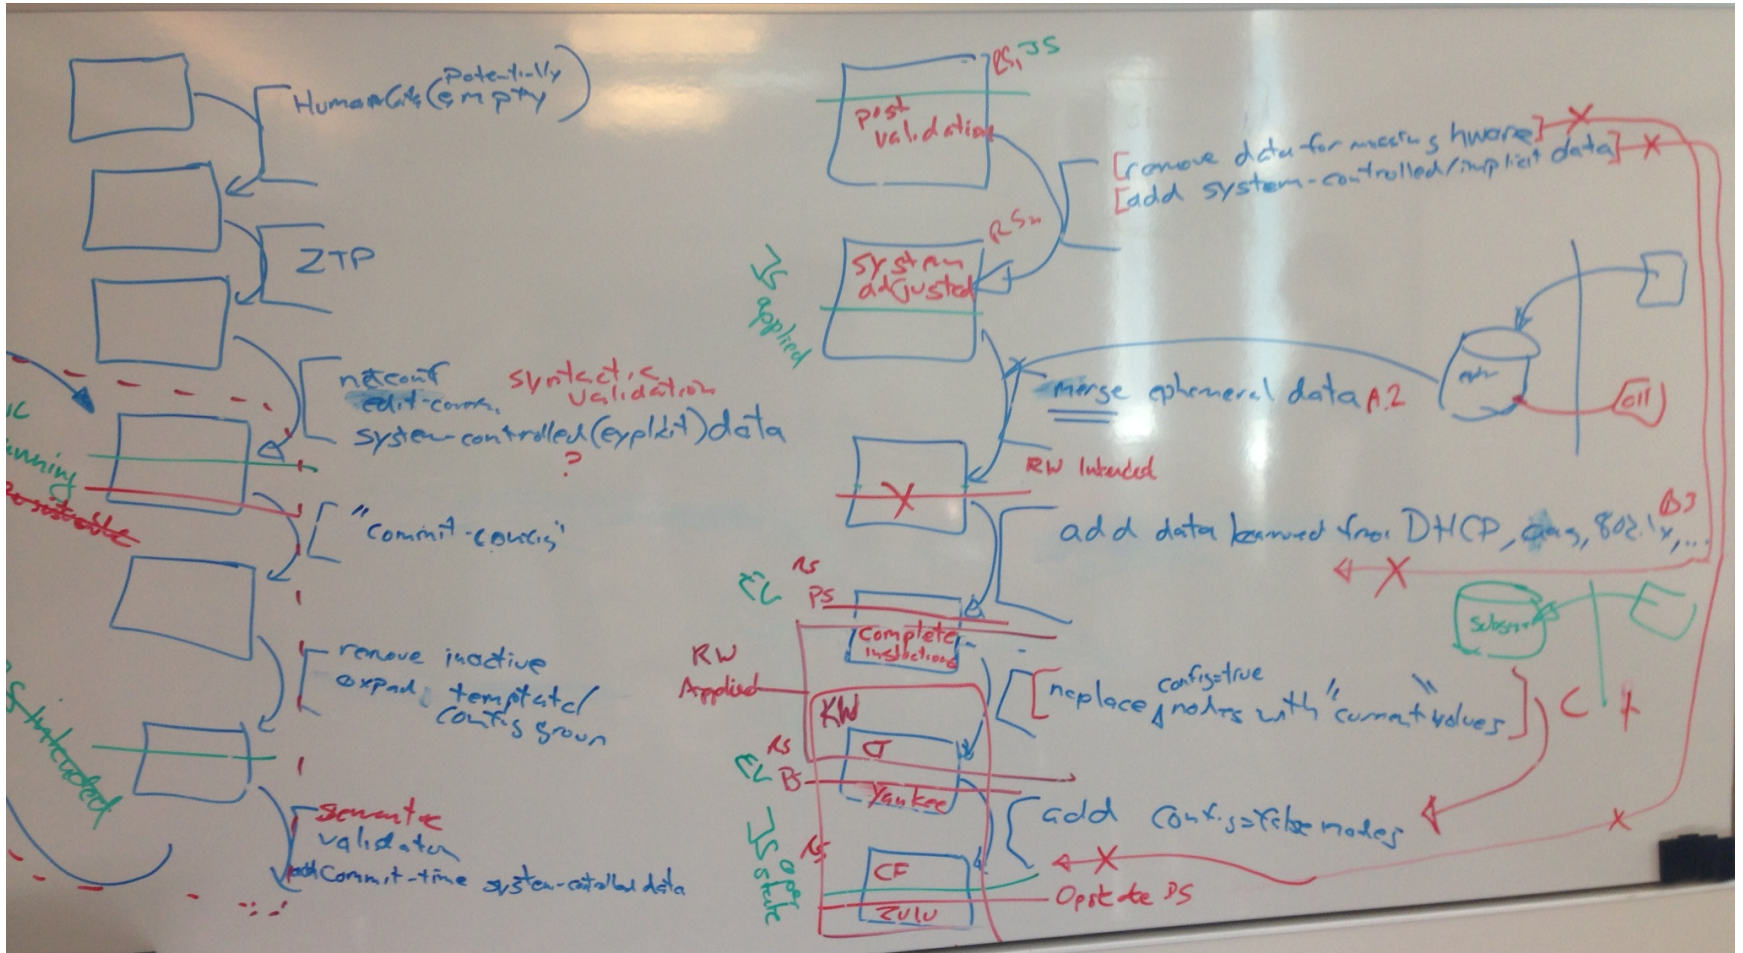 Potentially
Human (empty)
ZTP
netconf
edit-conf.
syntactic
validation
system-controlled (explicit) data
?
"commit-config"
remove inactive
expand template/
config group
semantic
validation
add Commit-time system-controlled data
unning
intended
RS, JS
post
validation
[remove data for missing hware]
[add system-controlled/implicit data]
system
adjusted
JS
applied
merge ephemeral data A.2
RW Intended
X
add data learned from DHCP, 802.1x, ...
B3
RS
PS
EL
Complete
RW
Applied
[replace config=true nodes with "current" values]
C
RW
CT
RS
EL PS
Yankee
add config=false nodes
RS
CF
JS oper
state
Zulu
Opstate PS